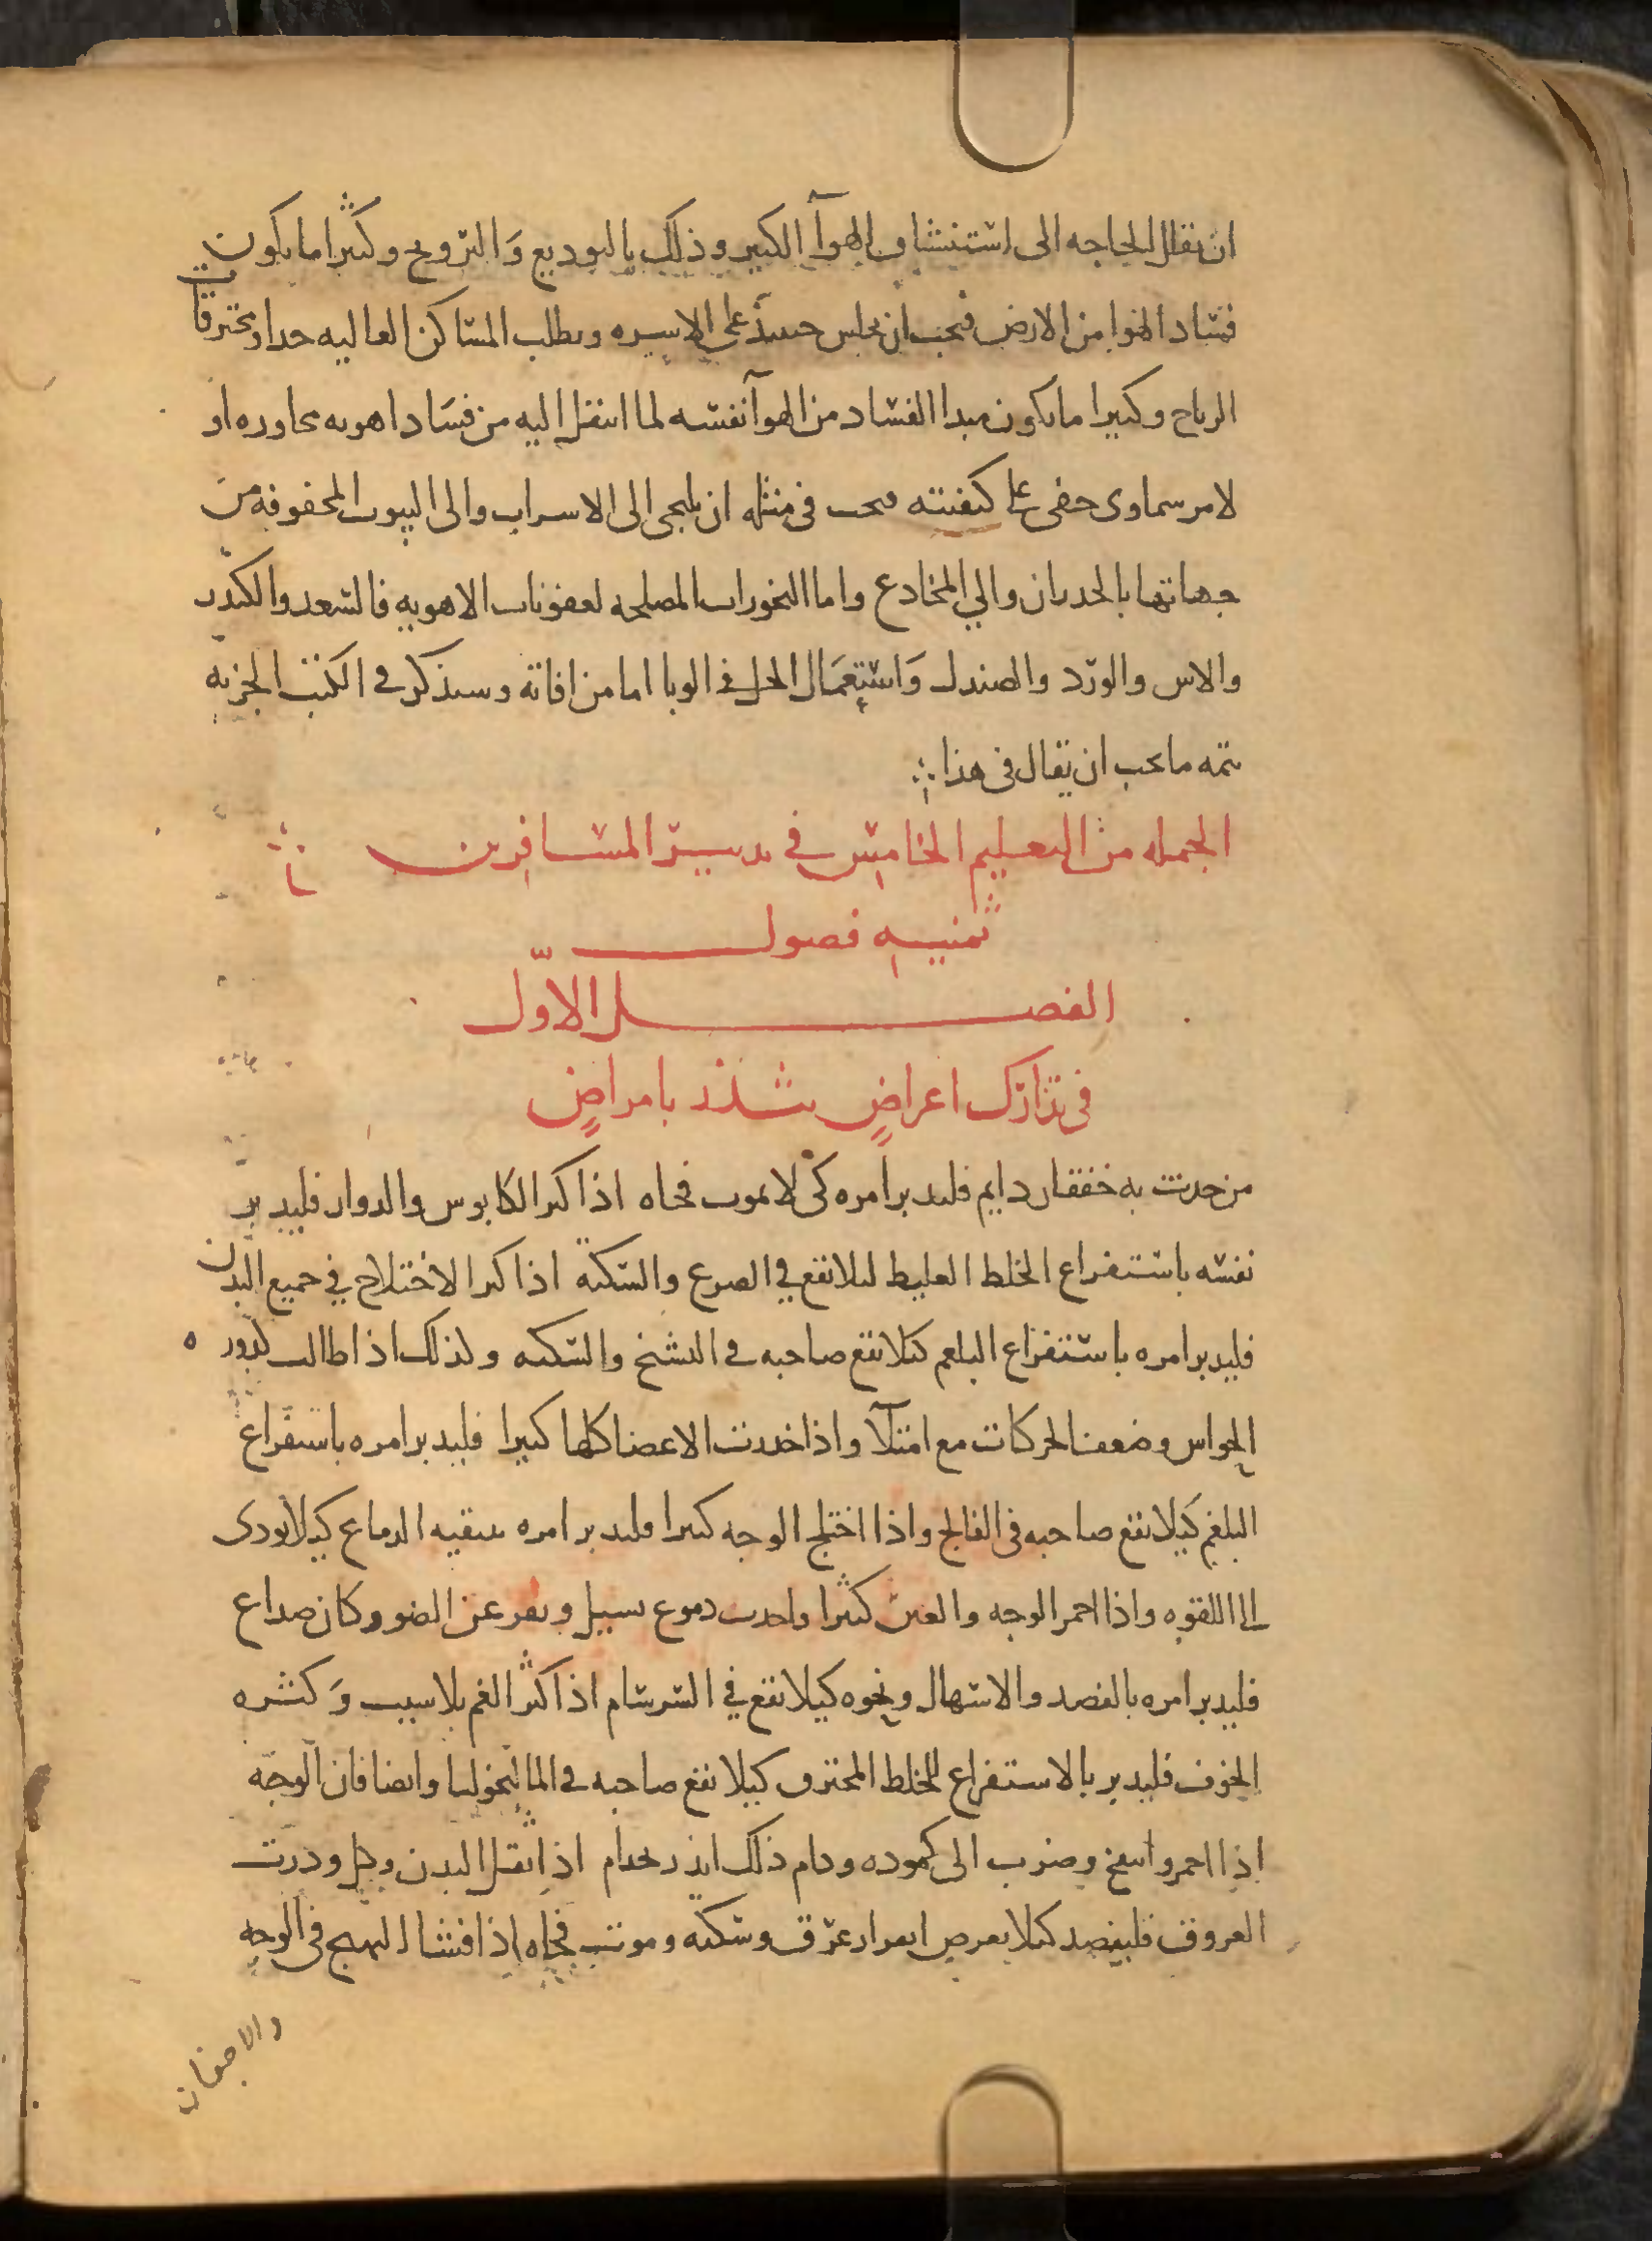 ان تقلل الحاجه الى استنشاق الهوآ الكبير وذلك بالتوديع وَالترويح وكثيرا ما يكون
فساد الهوا من الارض فيجب ان يجلس حينئذ على الاسره ويطلب المساكن العاليه جدا ومخترقات
الرياح وكثيرا ما يكون مبدا الفساد من الهوآ نفسه لما انتقل اليه من فسَاد اهويه مجاوره او
لامر سماوى خفى على كيفيته فيجب فى مثله ان يلتجى الى الاسراب والى البيوت المحفوفه من
جهاتها بالجدران والي المخادع واما البخورات المصلحه لعفونات الاهويه فالسعد والكندر
والاس والورد والصندل وَاستعمَال الخل في الوبا امان من افاته وسيذكر في الكتب الجزئيه
تتمه ما يجب ان يقال فى هذا
الجمله من التعليم الخامس في تدبير المسافرين
ثمنيه فصول
الفصل الاوّل
فى تدارك اعراضٍ تنذر بامراضٍ
من حدث به خفقان دايم فليدبر امره كى لا يموت فجاه اذا كثر الكابوس والدوار فليدبر
نفسه باستفراغ الخلط الغليط لىلا يقع في الصرع والسكته اذا كثر الاختلاج في جميع البدن
فليدبر امره باستفراغ البلغم كيلا يقع صاحبه في التشنج والسكته ولذلك اذا طالت كدور
الحواس وضعف الحركات مع امتلآ واذا خدرت الاعضا كلها كثيرا فليدبر امره باستفراغ
البلغم كيلا يقع صاحبه فى الفالج واذا اختلج الوجه كثيرا فليدبر امره بتنقيه الدماغ كيلا يودى
الى اللقوه واذا احمر الوجه والعين كثيرا واخذت دموع تسيل ويفر عن الضوء وكان صداع
فليدبر امره بالفصد والاسهال ونحوه كيلا يقع في السرسام اذا كثر الغم بلا سبب وَكثره
الخوف فليدبر بالاستفراغ للخلط المحترق كيلا يقع صاحبه في المالنخوليا وايضا فان الوجه
اذا احمر وانتفخ وضرب الى كموده ودام ذلك انذر بجذام اذا ثقل البدن وكل ودرت
العروق فليفصد كيلا يعرض انفزار عرق وسكته وموت فجاه اذا فشا التهيج فى الوجه
والاجفان